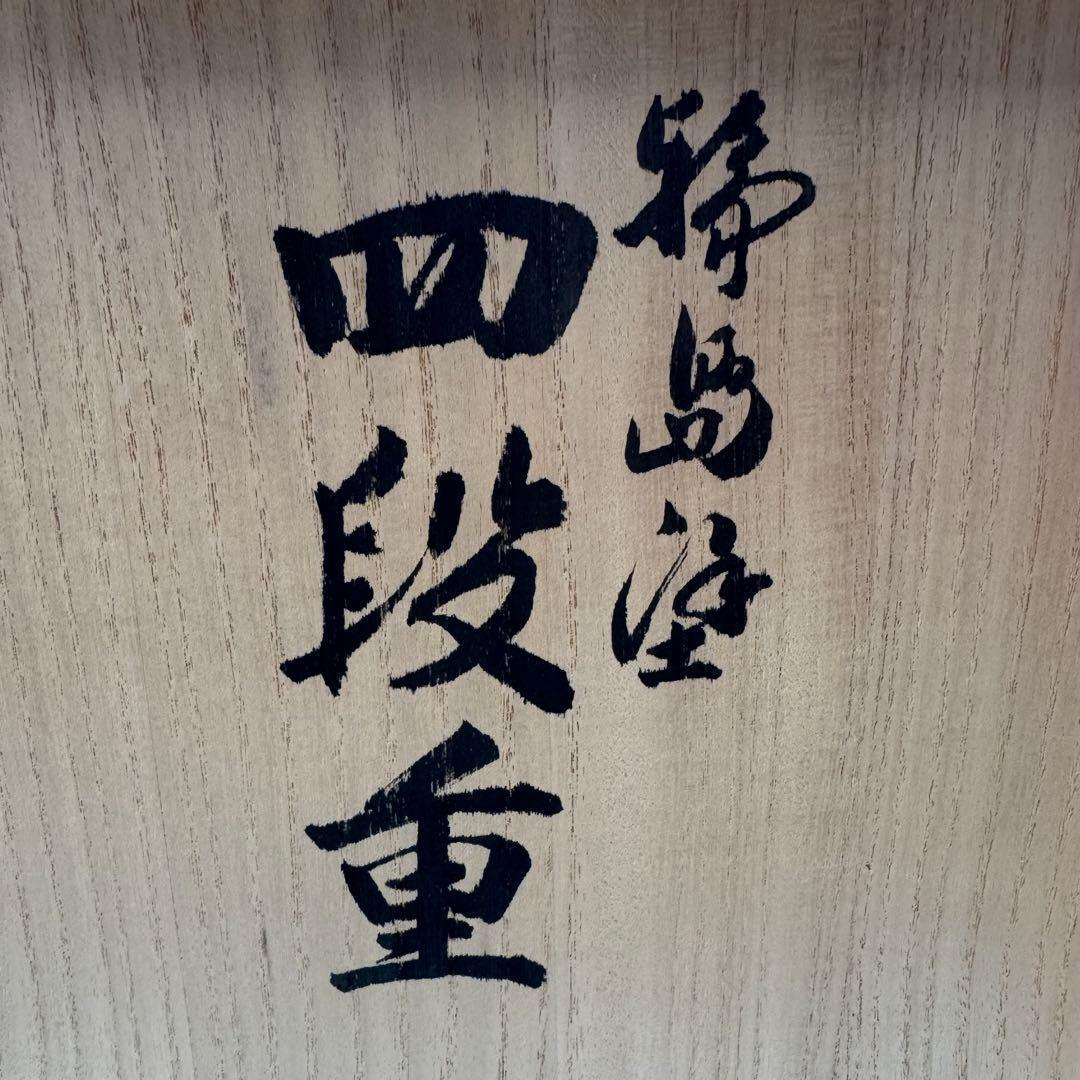 輪島塗
四段重